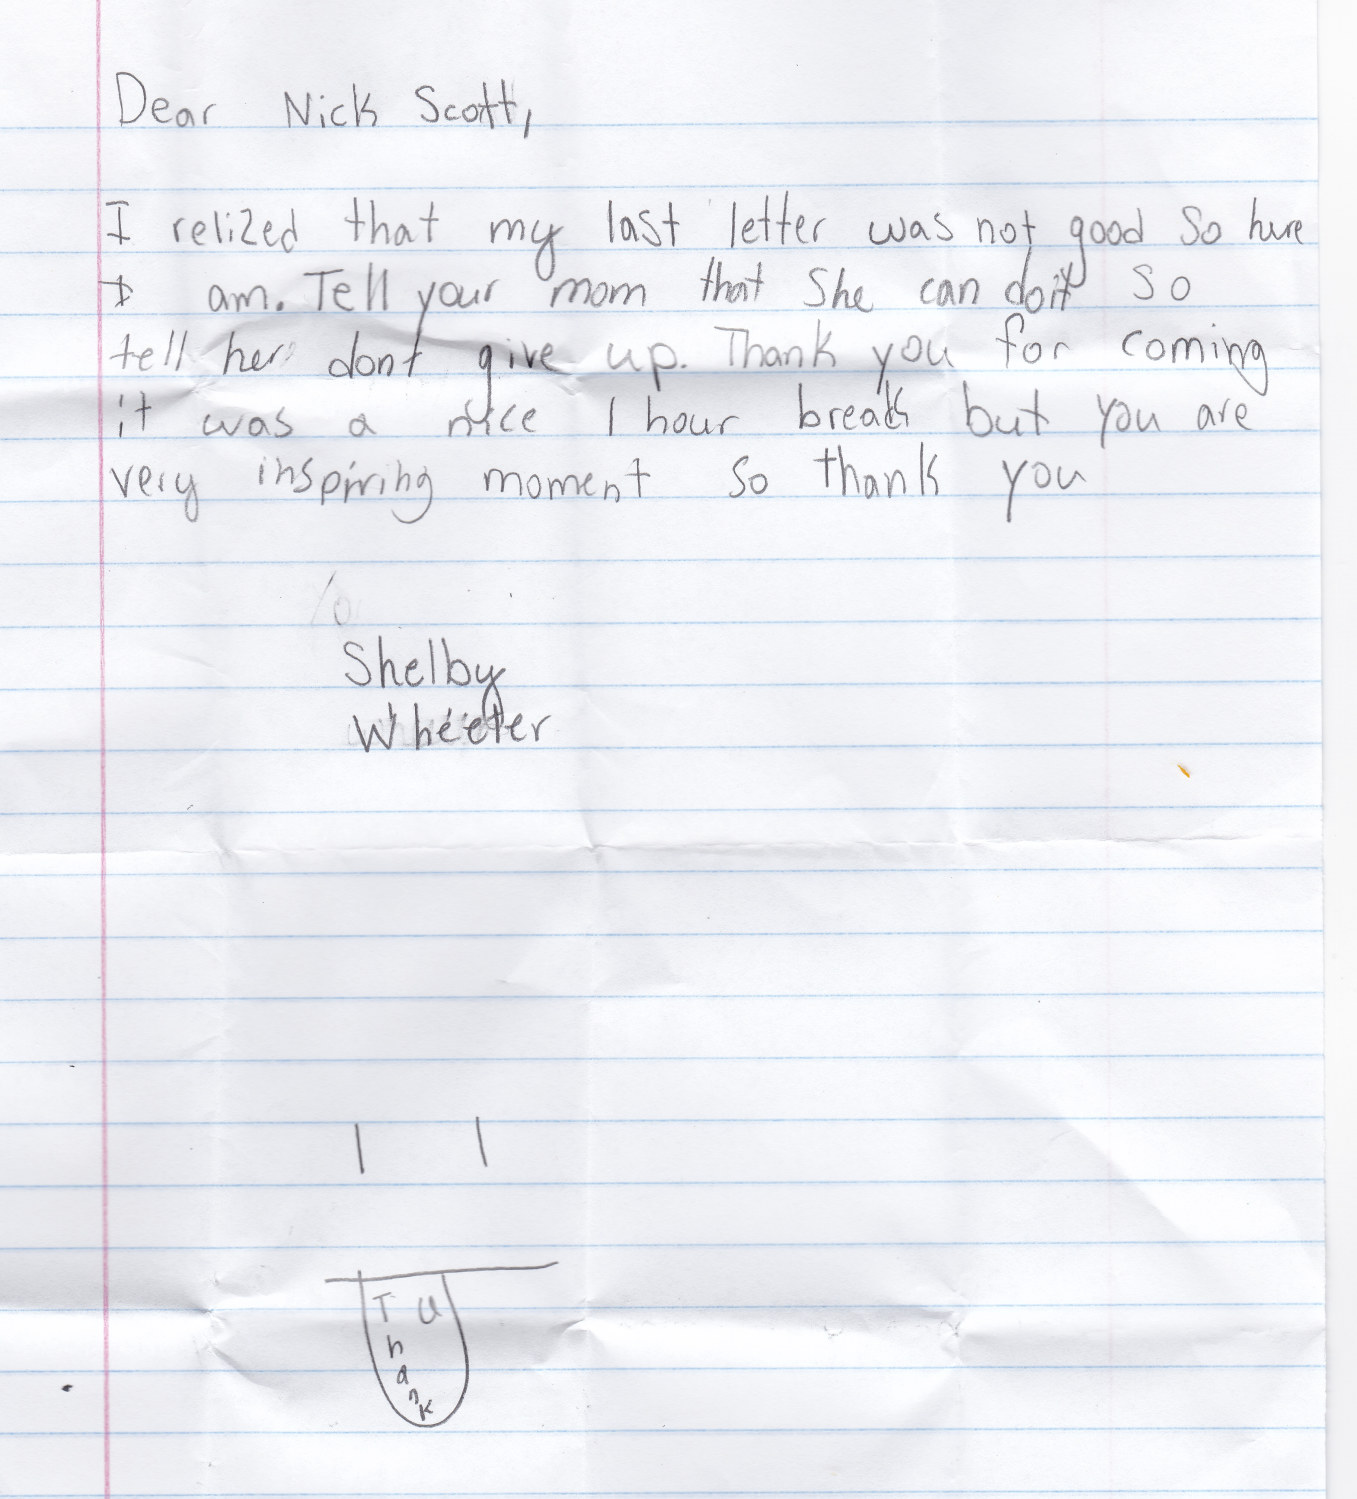 Dear Nick Scott,
I relized that my last letter was not good So here
I am. Tell your mom that She can do it So
tell her dont give up. Thank you for coming
it was a nice 1 hour break but you are
very inspiring moment So thank you
Shelby
Wheeler
T U
h
a
n
k